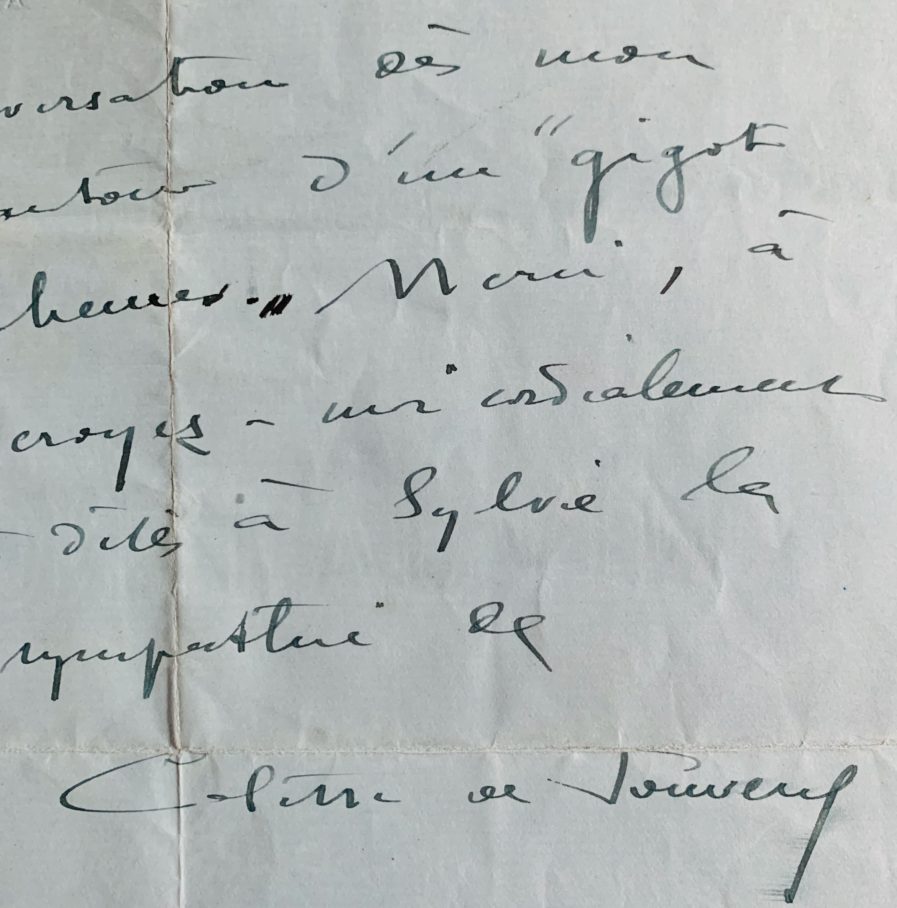 versation dès mon
autour d'un "gigot
heures." Merci, à
croyez-moi cordialement
dites à Sylvie la
sympathie de
Colette de Jouvenel